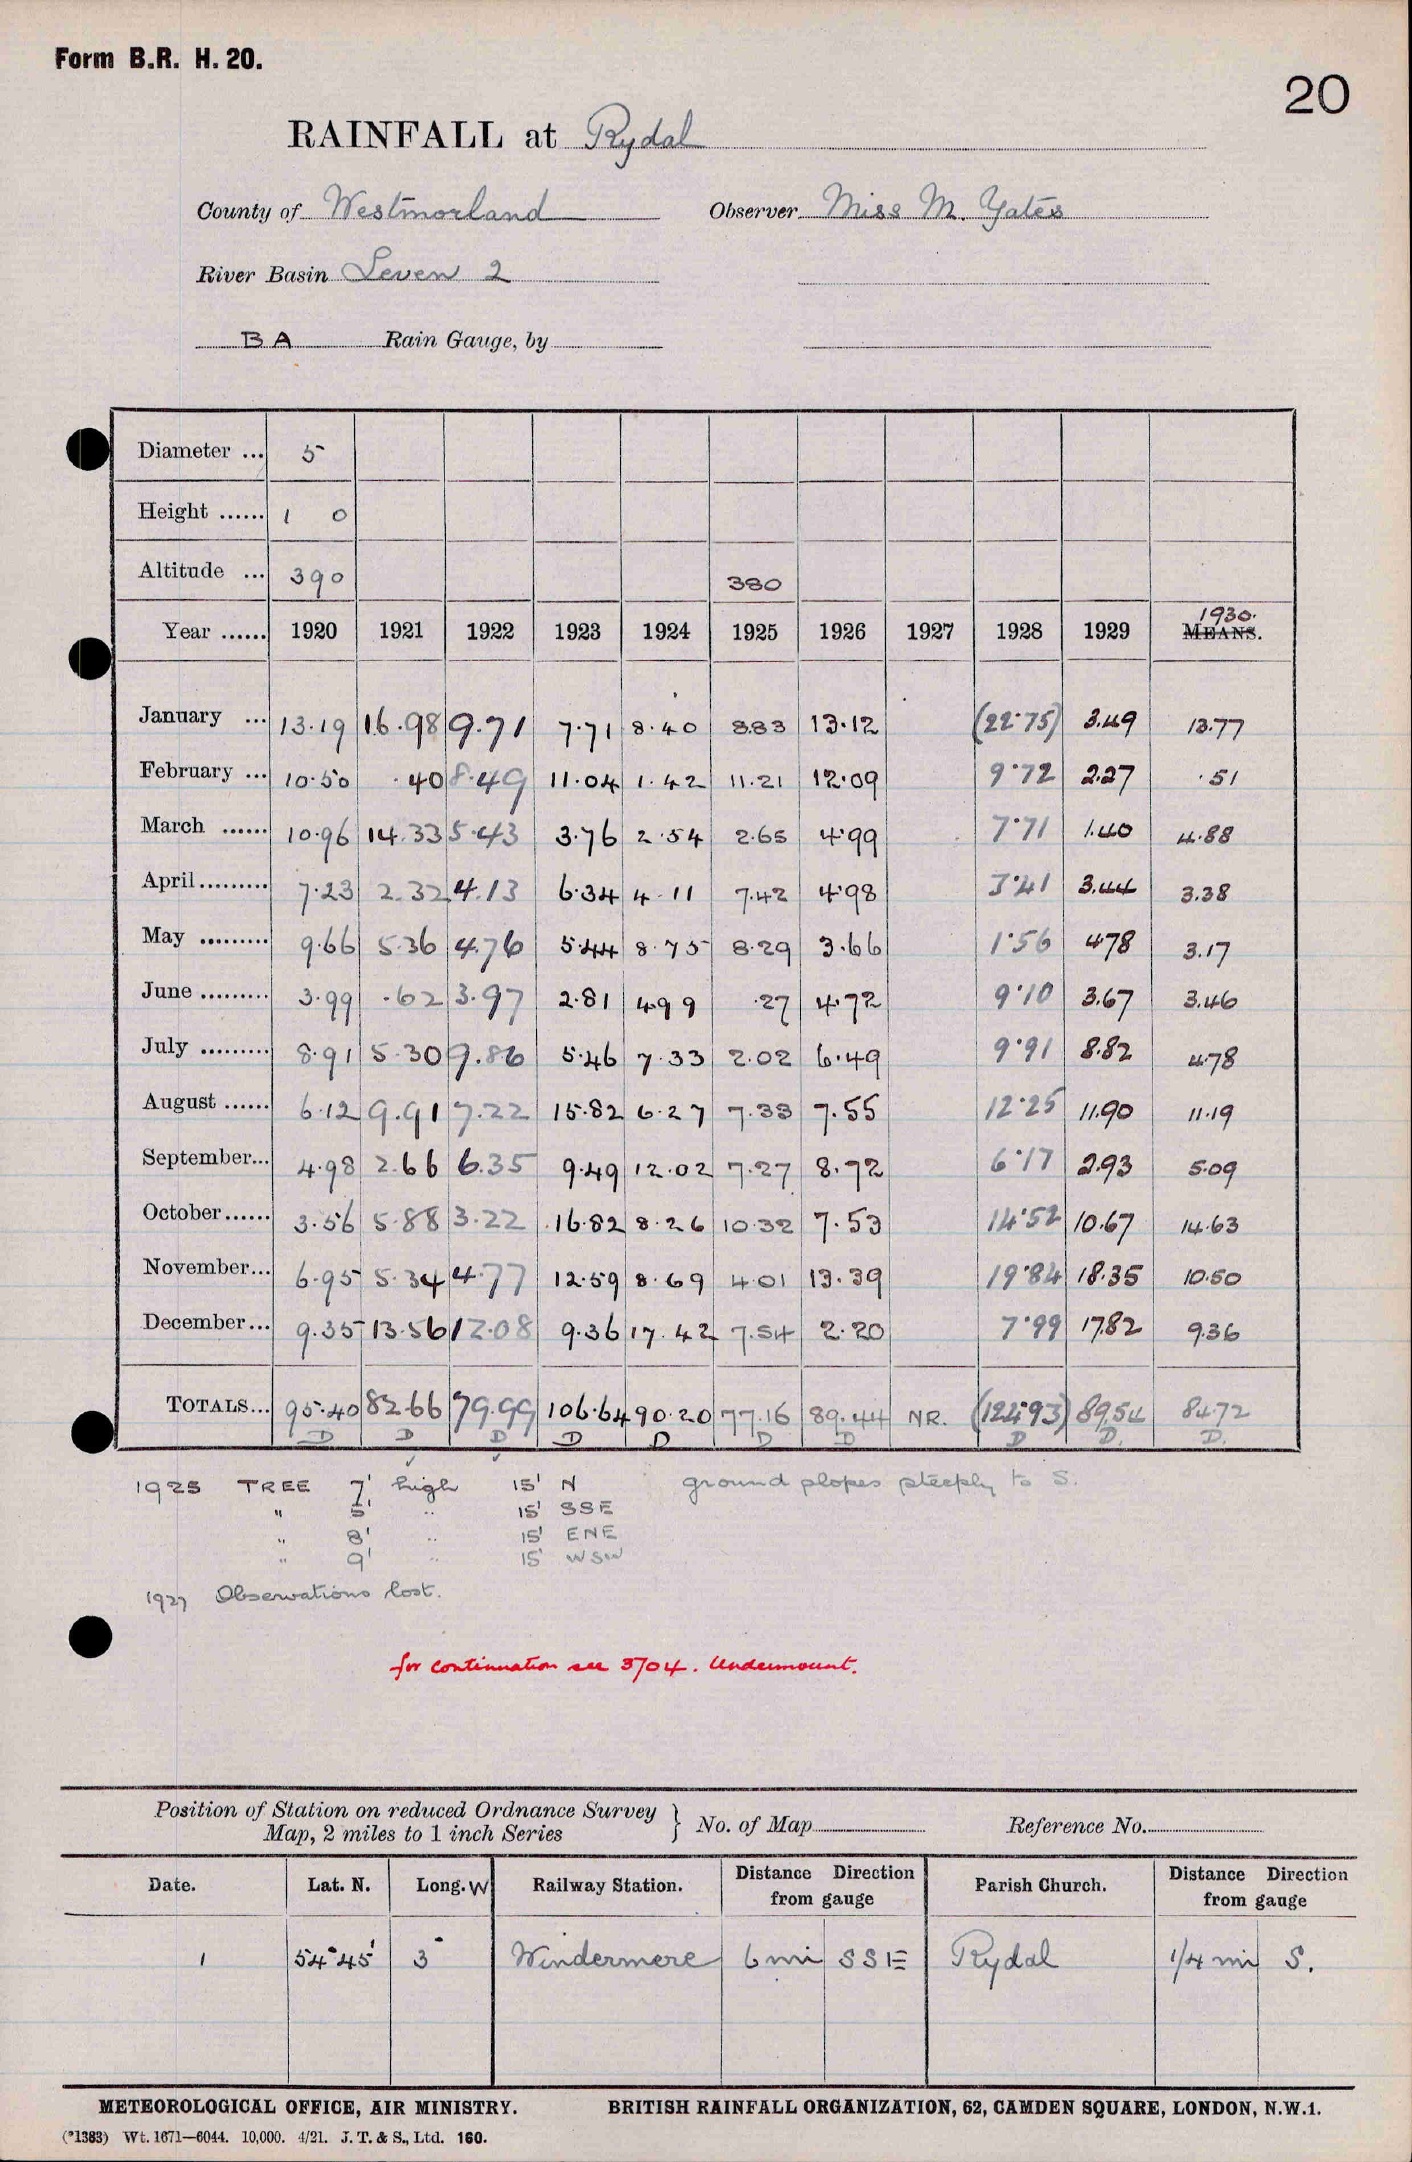 Form B.R. H. 20.
20
RAINFALL at Rydal
County of Westmorland Observer Miss M. Yates
River Basin Leven 2
BA Rain Gauge, by
Diameter ... 5
Height ...... 1 0
Altitude ... 390 380
1930.
Year ...... 1920 1921 1922 1923 1924 1925 1926 1927 1928 1929 MEANS.
January ... 13.19 16.98 9.71 7.71 8.40 8.83 13.12 (22.75) 3.49 13.77
February ... 10.50 .40 8.49 11.04 1.42 11.21 12.09 9.72 2.27 .51
March ...... 10.96 14.33 5.43 3.76 2.54 2.65 4.99 7.71 1.40 4.88
April ......... 7.23 2.32 4.13 6.34 4.11 7.42 4.98 3.41 3.44 3.38
May ......... 9.66 5.36 4.76 5.44 8.75 8.29 3.66 1.56 4.78 3.17
June ......... 3.99 .62 3.97 2.81 4.99 .27 4.72 9.10 3.67 3.46
July ......... 8.91 5.30 9.86 5.46 7.33 2.02 6.49 9.91 8.82 4.78
August ...... 6.12 9.91 7.22 15.82 6.27 7.33 7.55 12.25 11.90 11.19
September... 4.98 2.66 6.35 9.49 12.02 7.27 8.72 6.17 2.93 5.09
October ...... 3.56 5.88 3.22 16.82 8.26 10.32 7.53 14.52 10.67 14.63
November... 6.95 5.34 4.77 12.59 8.69 4.01 13.39 19.84 18.35 10.50
December... 9.35 13.56 12.08 9.36 17.42 7.54 2.20 7.99 17.82 9.36
TOTALS... 95.40 82.66 79.99 106.64 90.20 77.16 89.44 NR. (124.93) 89.54 84.72
D D D D D D D D D. D.
1925 TREE 7' high 15' N ground slopes steeply to S.
" 5' .. 15' SSE
" 8' .. 15' ENE
" 9' .. 15' WSW
1927 Observations lost.
for continuation see 3704. Undermount.
Position of Station on reduced Ordnance Survey
Map, 2 miles to 1 inch Series } No. of Map Reference No.
Date. Lat. N. Long. W Railway Station. Distance Direction from gauge Parish Church. Distance Direction from gauge
1 54° 45' 3° Windermere 6 mi SSE Rydal 1/4 mi S.
METEOROLOGICAL OFFICE, AIR MINISTRY. BRITISH RAINFALL ORGANIZATION, 62, CAMDEN SQUARE, LONDON, N.W.1.
(*1383) Wt. 1671—6044. 10,000. 4/21. J. T. & S., Ltd. 160.